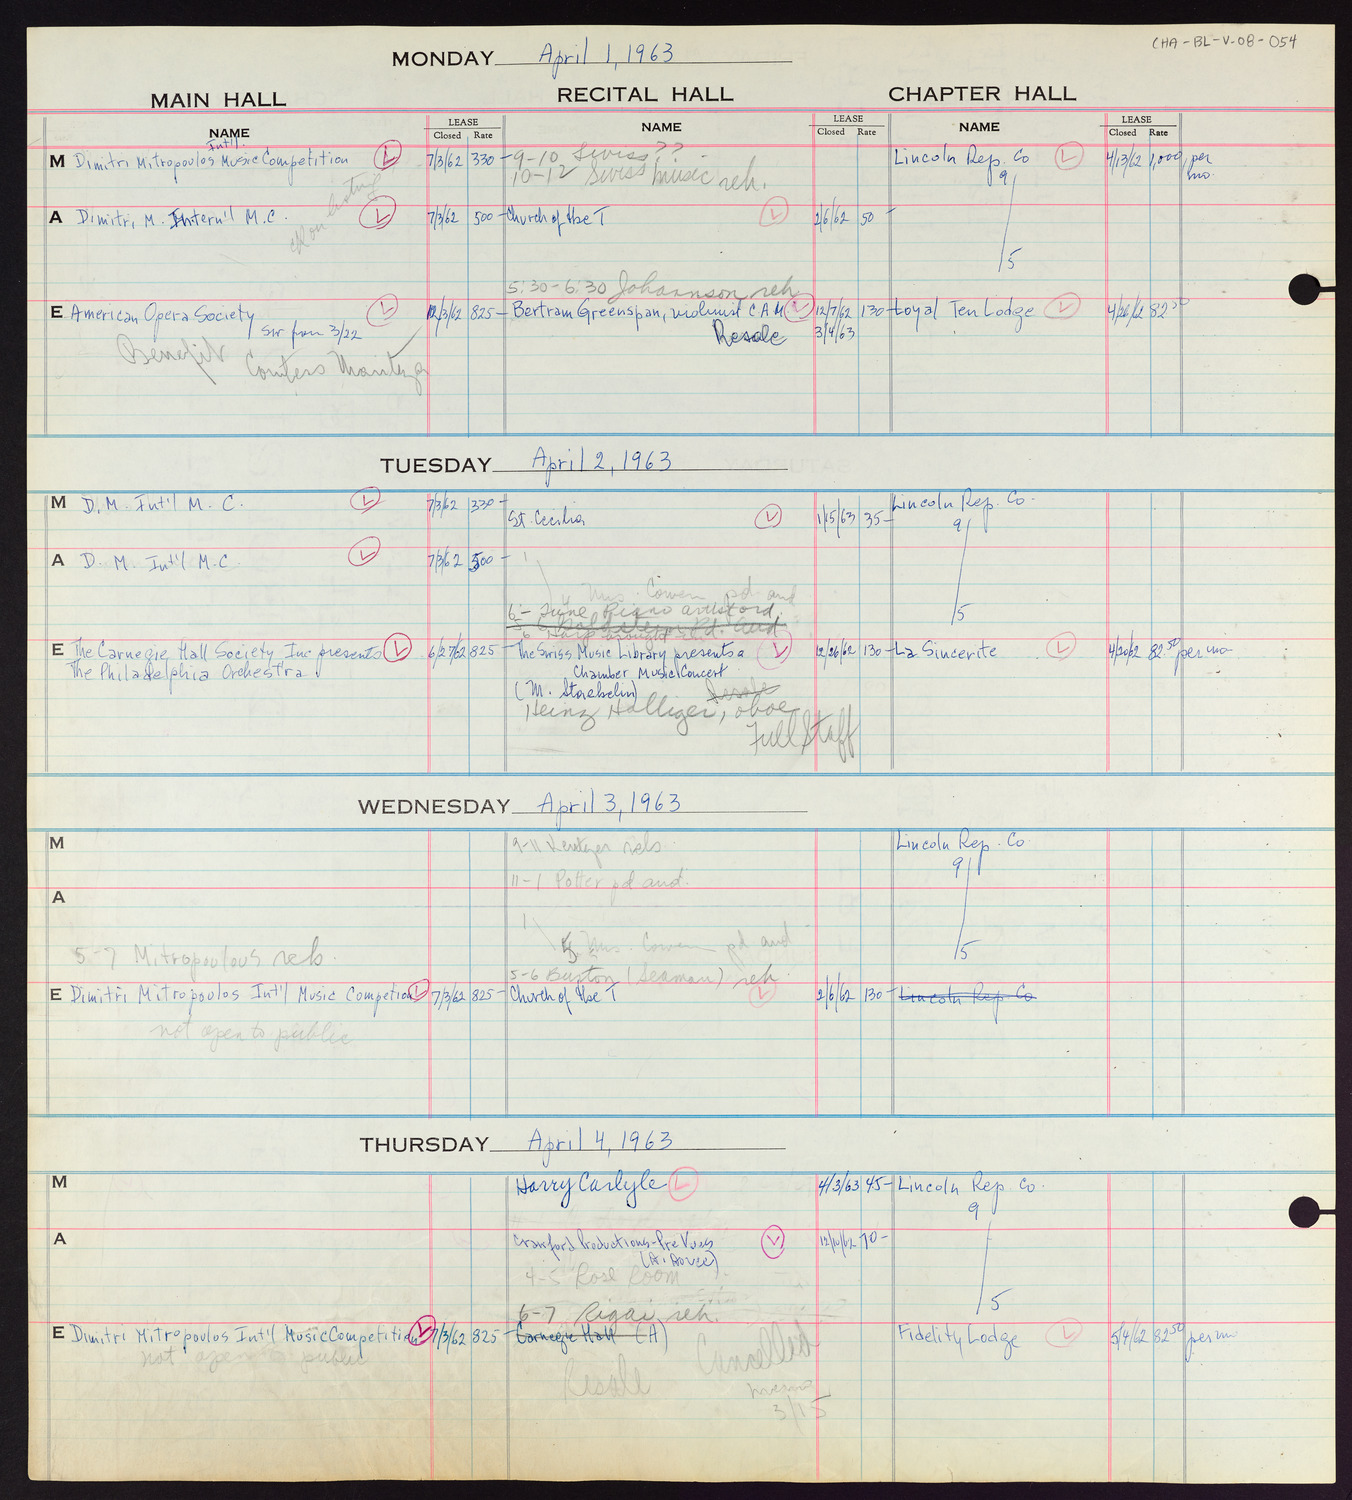 CHA-BL-V-08-054
MONDAY April 1, 1963
MAIN HALL RECITAL HALL CHAPTER HALL
NAME LEASE Closed Rate NAME LEASE Closed Rate NAME LEASE Closed Rate
Int'l.
M Dimitri Mitropoulos Music Competition L 7/3/62 330- 9-10 Swiss?? - Lincoln Rep. Co L 4/13/62 1,000 per mo.
10-12 Swiss music reh. 9
A Dimitri, M. Intern'l M.C. L 7/3/62 500- Church of the T L 2/6/62 50-
5
5:30-6:30 Johannson reh
E American Opera Society L 12/3/62 825- Bertram Greenspan, violinist CAM L 12/7/62 130- Loyal Ten Lodge L 4/26/62 82.50
sw from 3/22 Resale 3/4/63
Benefit
TUESDAY April 2, 1963
M D.M. Int'l M.C. L 7/3/62 330- Lincoln Rep. Co.
St. Cecilia L 1/15/63 35- 9
A D.M. Int'l M.C. L 7/3/62 500- 1
4 Mrs. Cowen pd and
6- June Piano artist ord. 5
E The Carnegie Hall Society Inc presents L 6/27/62 825- The Swiss Music Library presents a L 12/26/62 130- La Sincerite L 4/20/62 82.50 per mo
The Philadelphia Orchestra Chamber Music Concert
(M. Staebelin) Resale
Heinz Holliger, oboe
Full Staff
WEDNESDAY April 3, 1963
M 9-11 rehs. Lincoln Rep. Co
11-1 Potter pd aud. 9
A
1
5-7 Mitropoulous reh. 5 Mrs. Cowen pd and 5
5-6 Burton (Seaman) reh.
E Dimitri Mitropoulos Int'l Music Competion L 7/3/62 825- Church of the T L 2/6/62 130- Lincoln Rep. Co
not open to public
THURSDAY April 4, 1963
M Harry Carlyle L 4/3/63 45- Lincoln Rep. Co.
9
A Crawford Productions-PreVues L 12/10/62 70-
4-5 Rose Room
6-7 Rigai reh. 5
E Dimitri Mitropoulos Int'l Music Competition L 7/3/62 825- Carnegie Hall (A) Fidelity Lodge L 5/4/62 82.50 per mo
not open to public Cancelled
Resale
3/15